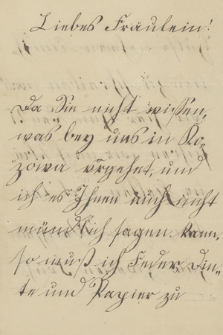 Liebes Fräulein!
Da Sie nicht wissen,
was bey uns in Ko-
zowa vorgehet, und
ich es Ihnen auch nicht
mündlich sagen kann,
so muß ich Feder, Din-
te und Papier zu